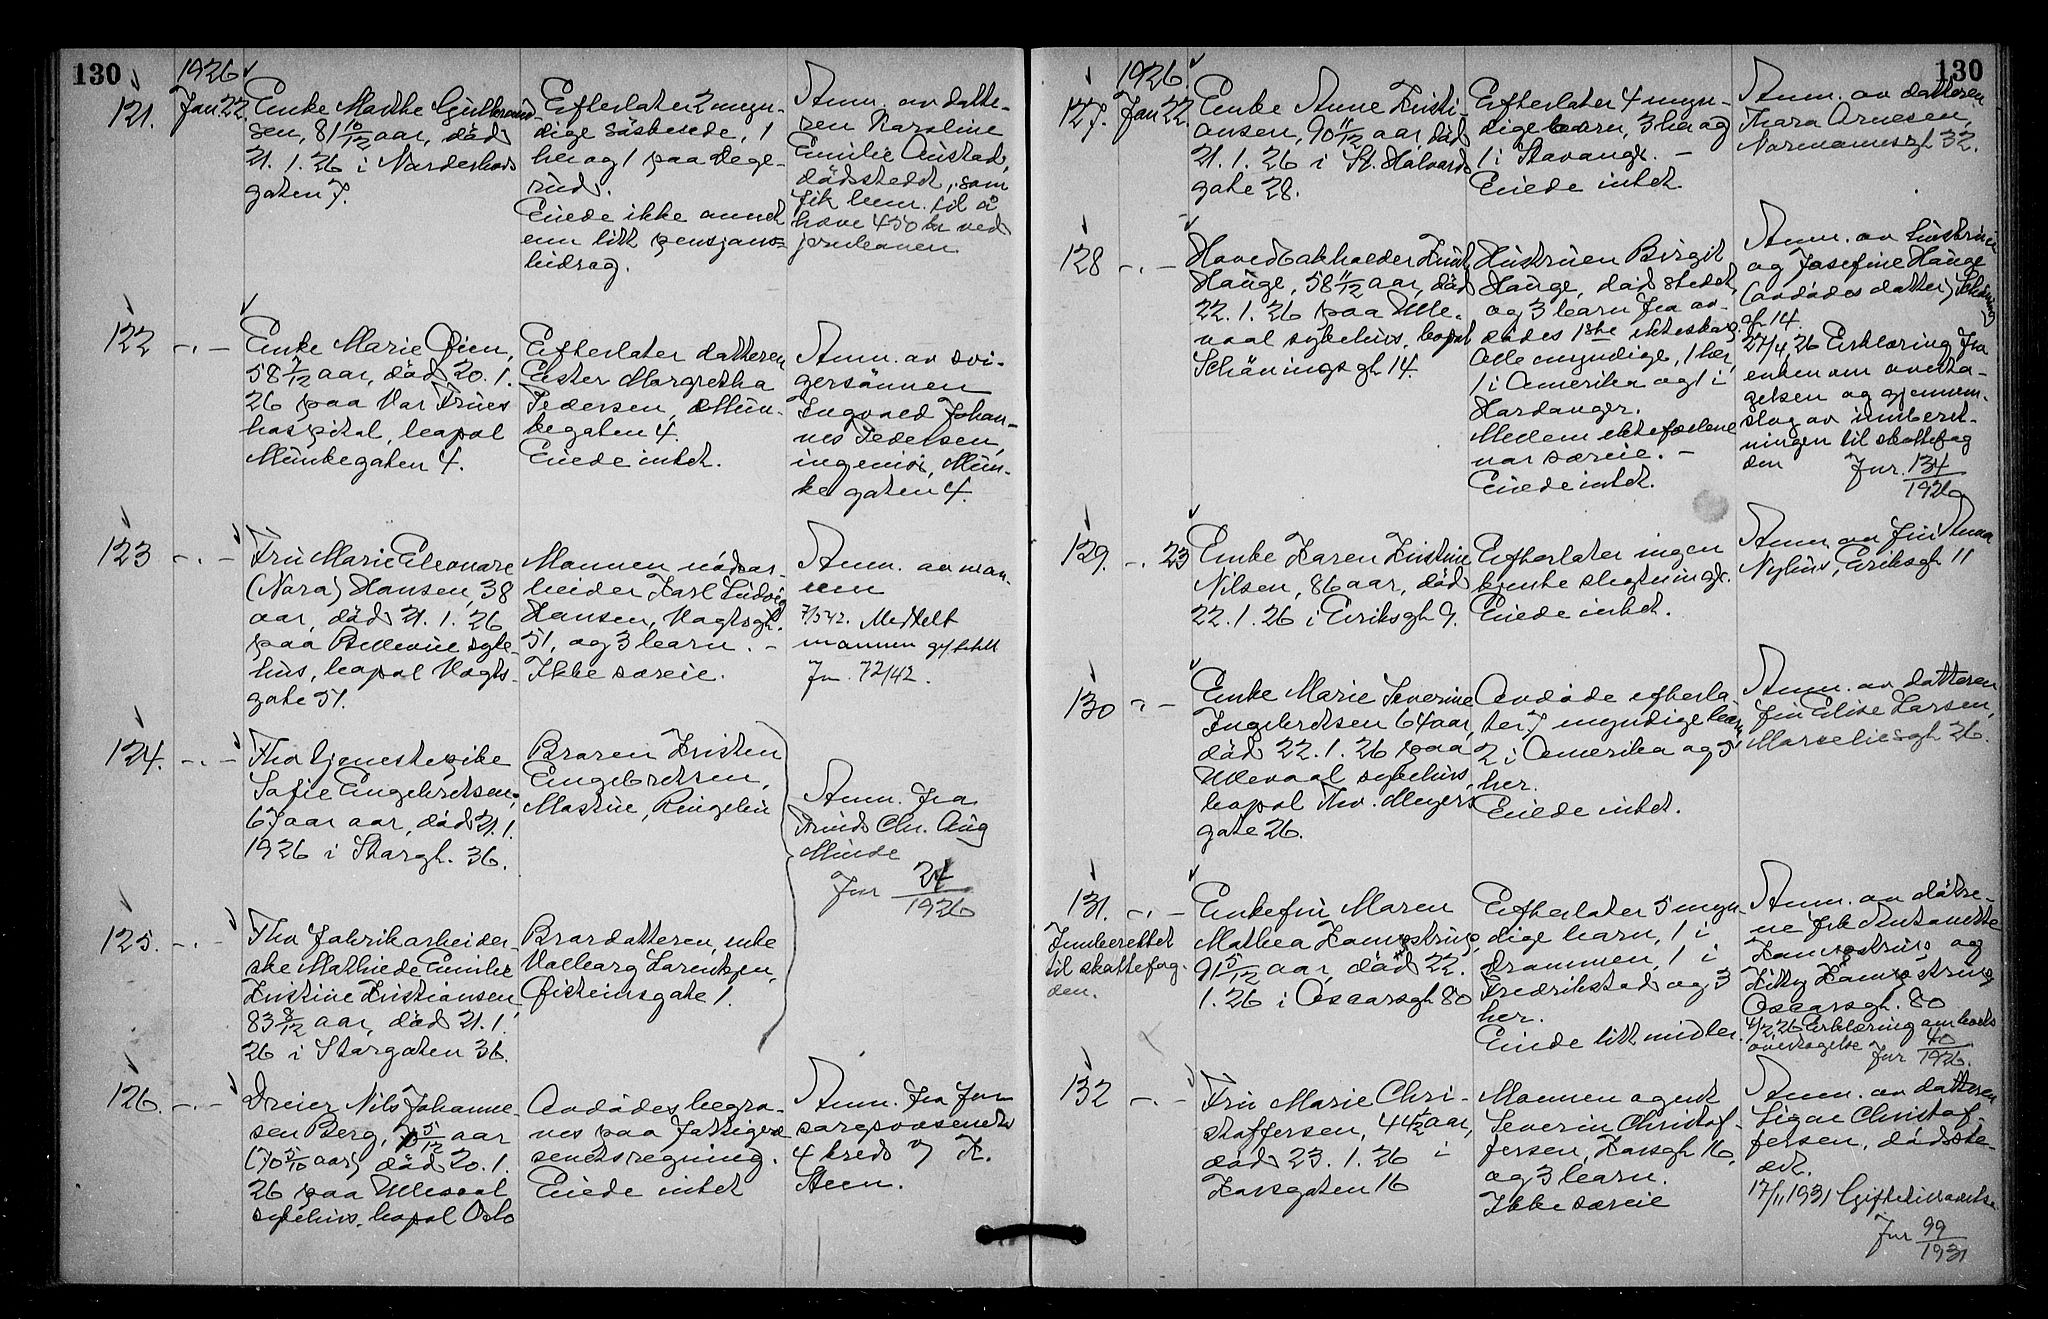 130
1926
121.
Jan 22.
Enke Marthe Gulbrand-
sen, 81 10/12 aar, död
21. 1. 26 i Nordenhovs
gaten 7.
Efterlater 2 myn-
dige söskende, 1
her og 1 paa Vege-
rud.
Eiede ikke annet
enn litt pensjons-
bidrag.
Anm. av datte-
ren Karoline
Emilie Austad,
dödstedet, som
fik bem. til å
heve 450 kr ved
122
-"-
Enke Marie Öien,
58 7/12 aar, död 20. 1.
26 paa Vor Frues
hospital, bopæl
Munkegaten 4.
Efterlater datteren
Ester Margretha
Pedersen, Mun-
kegaten 4.
Eiede intet.
Anm. av svi-
gersönnen
Ingvald Johan-
nes Pedersen,
ingeniör, Mun-
kegaten 4.
123
-"-
Fru Marie Eleonore
(Nora) Hansen, 38
aar, död 21. 1. 26
paa Bellevue syke-
hus, bopæl Vogts-
gate 51.
Mannen nödsar-
beider Karl Ludvig
Hansen, Vogtsgt.
51, og 3 barn. -
Ikke særeie.
Anm. av man-
nen
7/5 42. Meddelt
mannen
Jnr. 72/42.
124.
-"-
Fhv. tjenestepike
Sofie Engebretsen,
67 aar aar, död 21. 1.
1926 i Storgt. 36.
Broren Kristen
Engebretsen,
Mostue, Ringebu
Anm. fra
Chr. Aug
Minde
Jnr 24/1926
125.
-"-
Fhv. fabrikarbeider-
ske Mathilde Emilie
Kristine Kristiansen,
83 8/12 aar, död 21. 1.
26 i Storgaten 36.
Brordatteren, enke
Valborg Lorentzen,
Öisteinsgate 1.
126.
-"-
Dreier Nils Johanne-
sen Berg, 5/12 aar
(70 5/10 aar) död 20. 1.
26 paa Ullevaal
sykehus, bopæl Oslo
Avdödes begra-
ves paa fattigvæ-
senets regning.
Eiede intet
Anm. fra for-
sorgsvæsenets
4 kreds v/ K.
130
1926.
127.
Jan 22.
Enke Anne Kristi-
ansen, 90 11/12 aar, död
21. 1. 26 i St. Halvards
gate 28.
Efterlater 4 myn-
dige barn, 3 her og
1 i Stavanger. -
Eiede intet.
Anm. av datteren
Thora Arnesen,
Normannesgt 32.
128
-"-
Hovedbokholder Knut
Hauge, 58 11/12 aar, död
22. 1. 26 paa Ulle-
vaal sykehus, bopæl
Schöningsgt 14.
Hustruen Birgit
Hauge, dödstedet,
og 3 barn fra av-
dödes 1ste ekteskap.
Alle myndige, 1 her,
1 i Amerika og 1 i
Hardanger.
Mellem ektefællene
var særeie. -
Eiede intet.
Anm. av hustruen
og Josefine Hauge
(avdödes datter) Schönings
gt 14.
27/4 26 Erklæring fra
enken om overta-
gelsen og gjennem-
slag av innberet-
ningen til skattefog
den Jnr. 134/1926
129.
-"- 23
Enke Karen Kristine
Nilsen, 86 aar, död
22. 1. 26 i Eriksgt 9.
Efterlater ingen
kjente slegtninger.
Eiede intet.
Anm. av fru Anna
Nyhus, Eriksgt 11
130
-"-
Enke Marie Severine
Ingebretsen 64 aar,
död 22. 1. 26 paa
Ullevaal sykehus,
bopæl Thv. Meyers
gate 26.
Avdöde efterla-
ter 7 myndige barn,
2 i Amerika og 5
her.
Eiede intet.
Anm. av datteren
fru Elise Larsen,
Marceliesgt 26.
131.
-"-
Innberettet
til skattefog-
den.
Enkefru Maren
Mathea Kampstrup,
91 5/12 aar, död 22.
1. 26 i Oscarsgt 80
Efterlater 5 myn-
dige barn, 1 i
Drammen, 1 i
Fredrikstad og 3
her.
Eiede litt midler.
Anm. av dötre-
ne frk Antonette
Kampstrup og
Kitty Kampstrup
Oscarsgt. 80
4/2 26 Erklæring om bo-
overtagelse Jnr 40/1926.
132
-"-
Fru Marie Chri-
stoffersen, 44 1/2 aar,
död 23. 1. 26 i
Korsgaten 16
Mannen agent
Severin Christof-
fersen, Korsgt 16,
og 3 barn.
Ikke særeie
Anm. av datteren
Signe Christof-
fersen, dödste-
det.
17/11 1931 Skifteutskrift
Jnr 99/1931